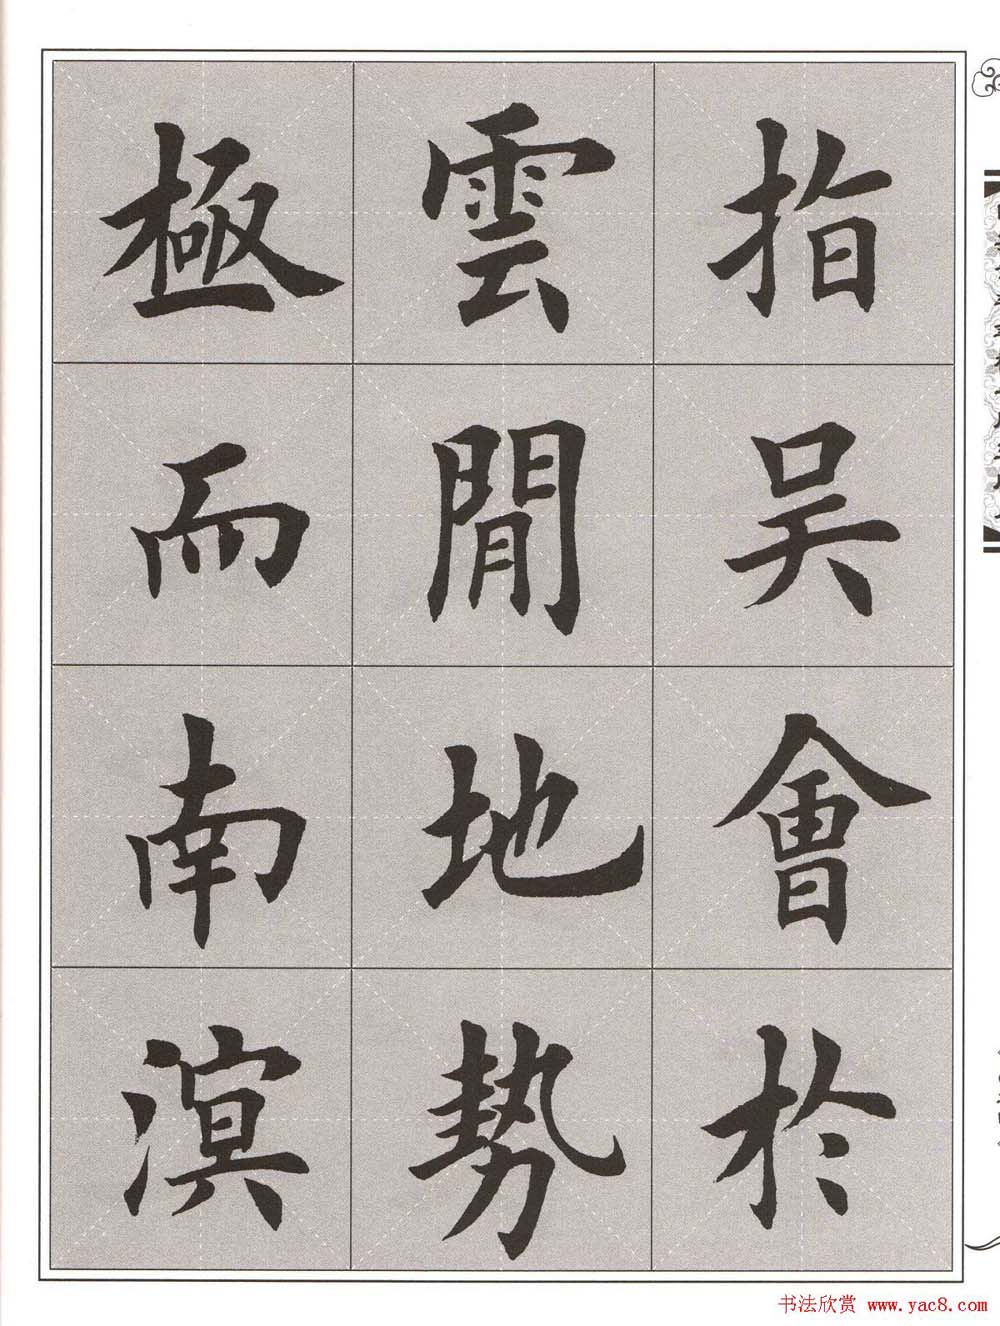 指吳會於
雲間地勢
極而南溟
书法欣赏 www.yac8.com